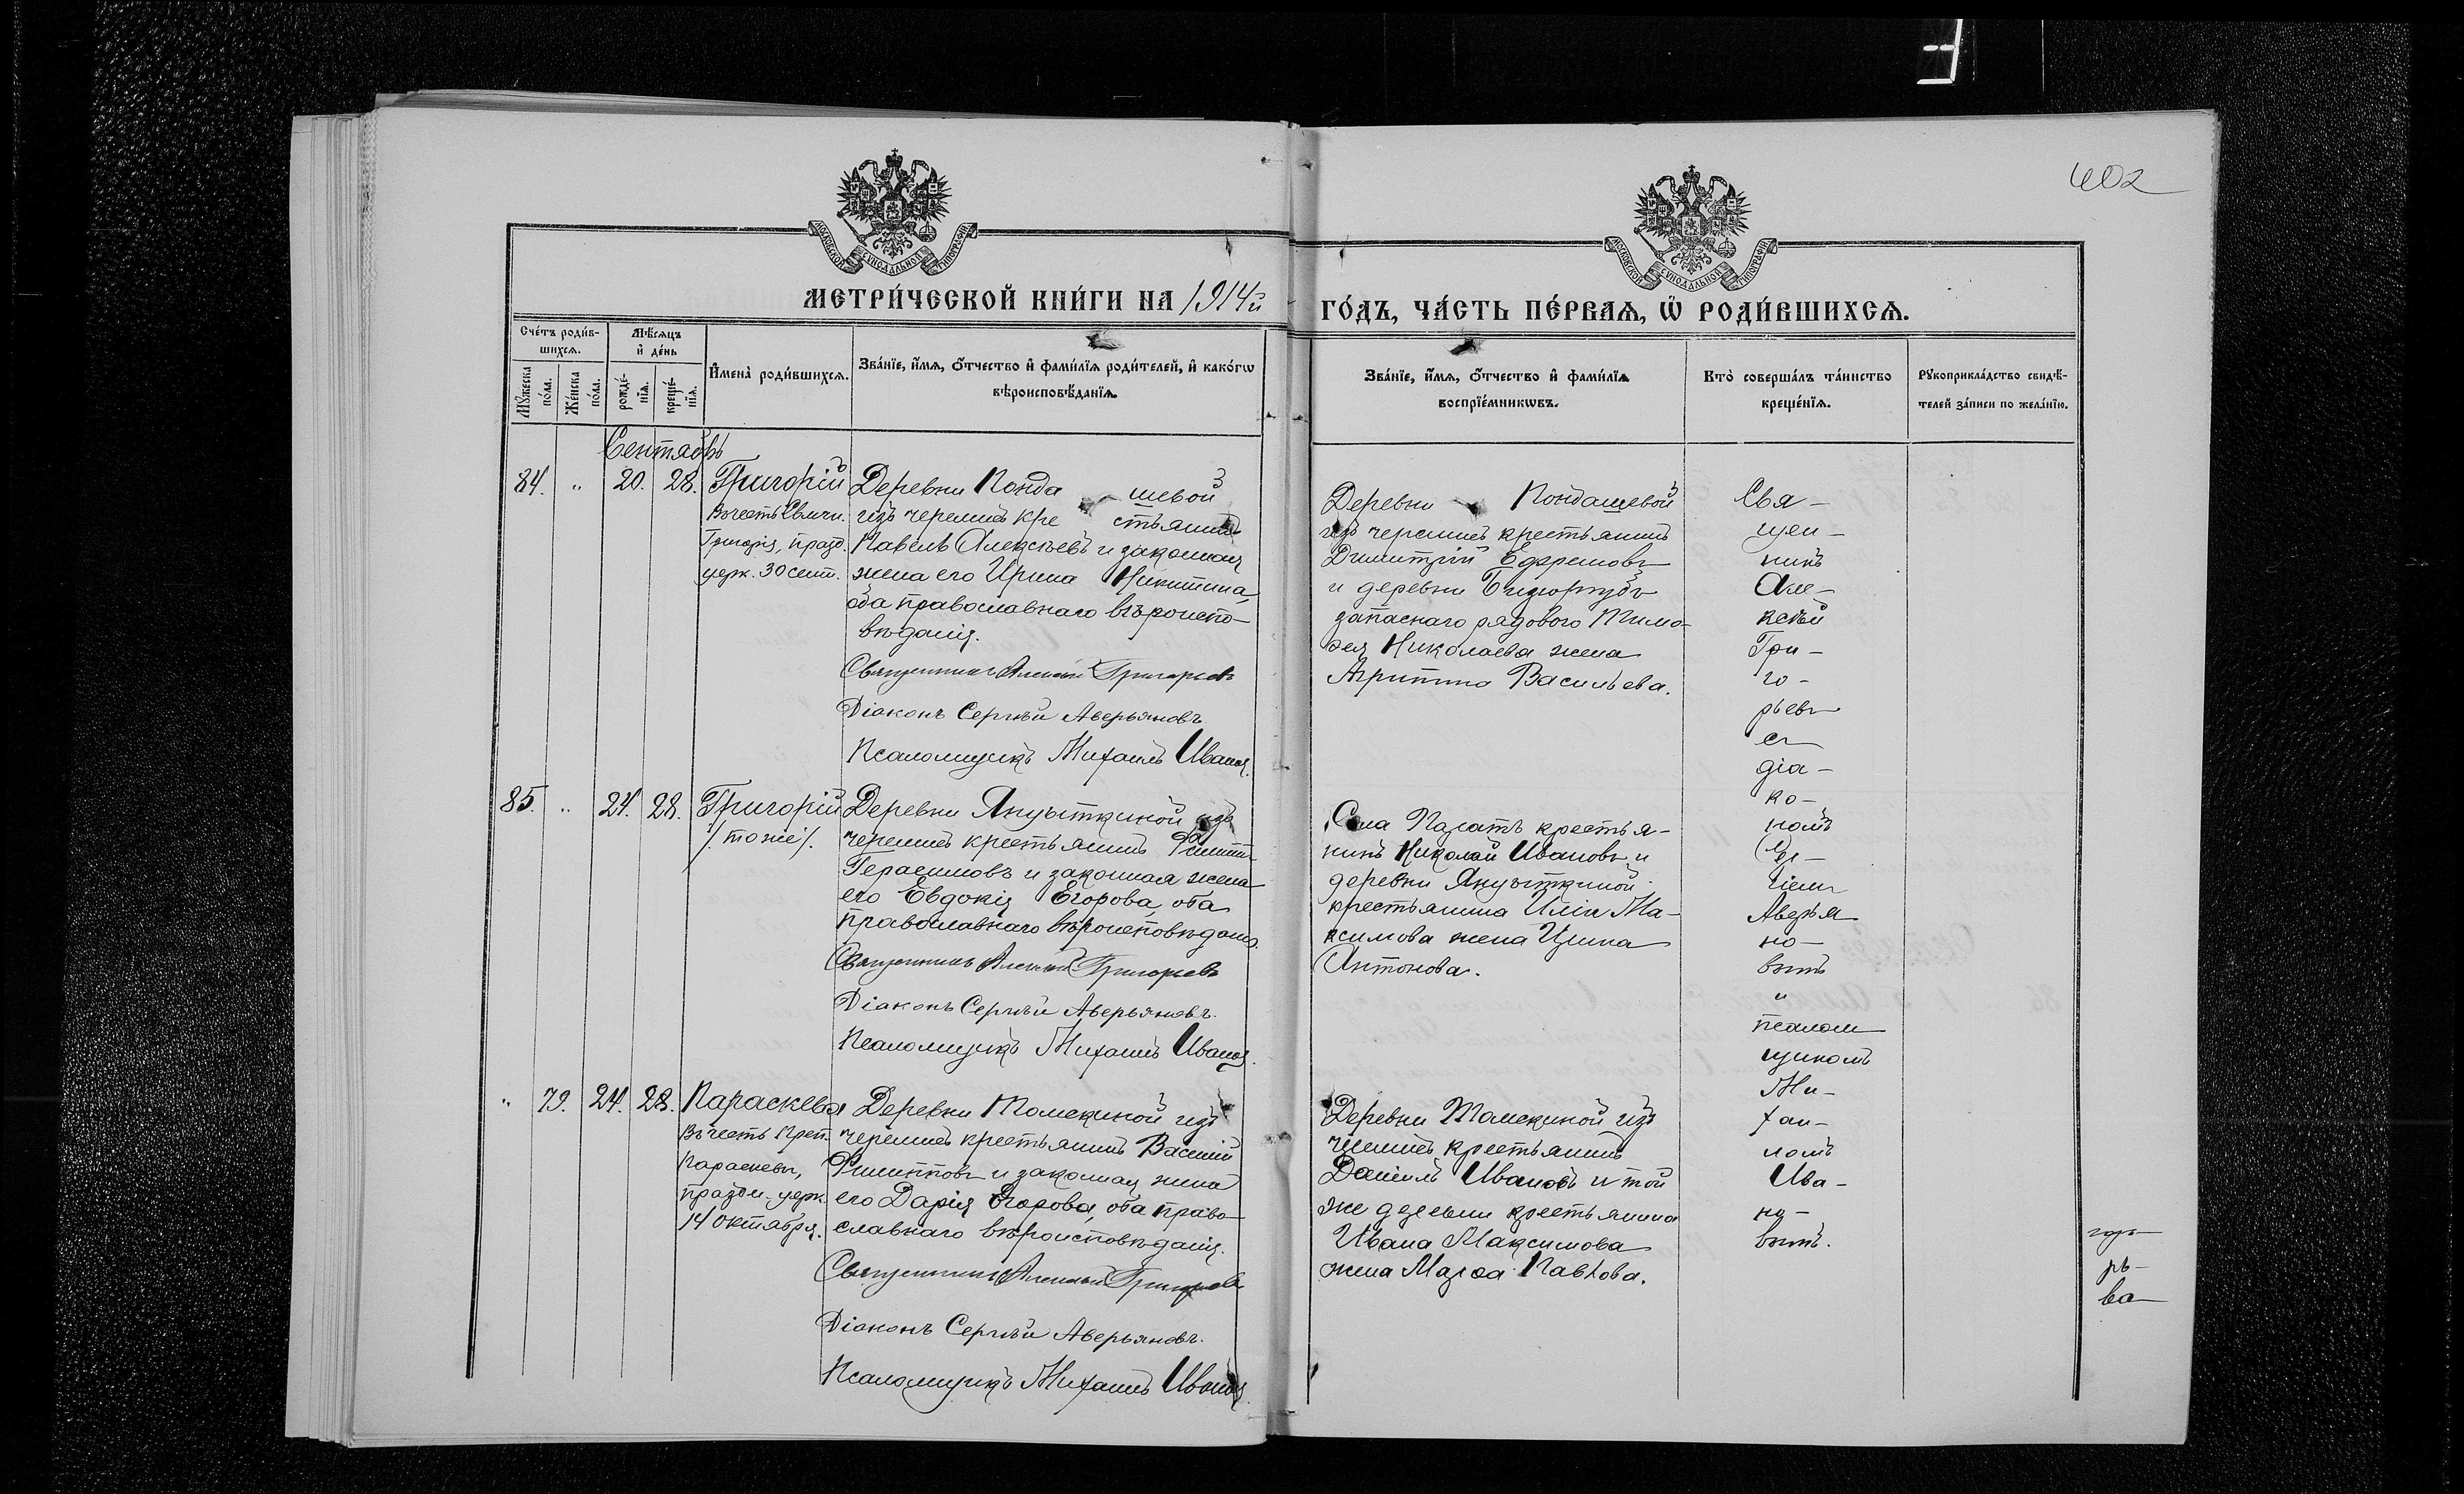 402
МОСКОВСКОЙ СѴНОДАЛЬНОЙ ТИПОГРАФІИ
МОСКОВСКОЙ СѴНОДАЛЬНОЙ ТИПОГРАФІИ
МЕТРИ́ЧЕСКОЙ КНИ́ГИ НА 1914й
ГО́ДЪ, ЧА́СТЬ ПЕ́РВАѦ, Ѡ҆ РОДИ́ВШИХСѦ.
Сче́тъ роди́в-
шихсѧ.
Мѣ́сѧцъ
и҆ де́нь
Мꙋ́жеска
по́ла.
Же́нска
по́ла.
рожде́-
нїѧ.
креще́-
нїѧ.
И҆мена̀ роди́вшихсѧ.
Зва́нїе, и҆́мѧ, ѻ҆́тчество и҆ фами́лїѧ роди́телей, и҆ како́гѡ
вѣроисповѣ́данїѧ.
Зва́нїе, и҆́мѧ, ѻ҆́тчество и҆ фами́лїѧ
воспрїе́мникѡвъ.
Кто̀ соверша́лъ та́инство
креще́нїѧ.
Рꙋкоприкла́дство свидѣ́-
телей за́писи по жела́нїю.
Сентябрь
84. „ 20. 28. Григорій
Въ честь Свмчн.
Григорія, празд.
церк. 30 сент.
Деревни Конда шевой
изъ черемисъ кре стьянинъ
Павелъ Алексѣевъ и законная
жена его Ирина Никитина,
оба православнаго вѣроиспо-
вѣданія.
Священникъ Алексій Григорьевъ
Діаконъ Сергѣй Аверьяновъ.
Псаломщикъ Михаилъ Ивановъ.
Деревни Кондашевой
изъ черемисъ крестьянинъ
Димитрій Ефремовъ
и деревни
запаснаго рядового Тимо-
фея Николаева жена
Агрипина Васильева.
Свя-
щен-
никъ
Але-
ксѣй
Гри-
го-
рьевъ
съ
діа-
ко-
номъ
Сер-
гіемъ
Аверья
но-
вымъ
и
псалом
щикомъ
Ми-
хаи-
ломъ
Ива-
но-
вымъ.
85. „ 24. 28. Григорій
/ тоже /.
Деревни Януыткиной изъ
черемисъ крестьянинъ Филиппъ
Герасимовъ и законная жена
его Евдокія Егорова, оба
православнаго вѣроисповѣданія.
Священникъ Алексій Григорьевъ
Діаконъ Сергѣй Аверьяновъ.
Псаломщикъ Михаилъ Ивановъ.
Села Паратъ крестья-
нинъ Николай Ивановъ и
деревни Януыткиной
крестьянина Иліи Ма-
ксимова жена Ирина
Антонова.
„ 79. 24. 28. Параскева
Въ честь Преп.
Параскевы,
праздн. церк.
14 октября.
Деревни Томекиной изъ
черемисъ крестьянинъ Василій
Филипповъ и законная жена
его Дарія Егорова, оба право-
славнаго вѣроисповѣданія.
Священникъ Алексій Григорьевъ
Діаконъ Сергѣй Аверьяновъ.
Псаломщикъ Михаилъ Ивановъ.
Деревни Томекиной изъ
черемисъ крестьянинъ
Даніилъ Ивановъ и той
же деревни крестьянина
Ивана Максимова
жена Марѳа Павлова.
рь-
ва